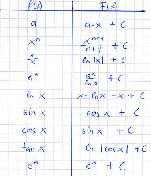 f(x) F(x)
a a·x + C
xⁿ xⁿ⁺¹/n+1 + C
ln|x| + C
aˣ aˣ/ln a + C
ln x x·ln x - x + C
sin x cos x + C
cos x sin x + C
tan x ln|cos x| + C
eˣ eˣ + C